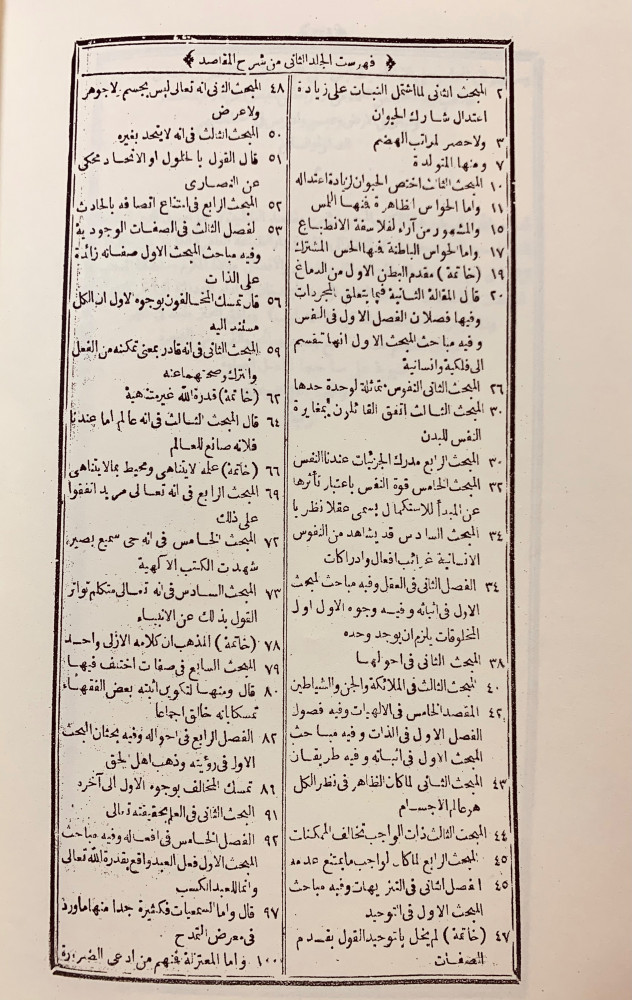 فهرست الجلد الثانى من شرح المقاصد
٢ المبحث الثانى لما اشتمل النبات على زيادة
اعتدال شارك الحيوان
٣ ولاحصر لمراتب الهضم
٧ ومنها المتولدة
١٠ المبحث الثالث اختص الحيوان لزيادة اعتداله
١١ واما الحواس الظاهرة فنها اللمس
١٥ والمشهور من آراء الفلاسفة الانطباع
١٧ واما الحواس الباطنة فنها الحس المشترك
١٩ (خاتمة) مقدم البطن الاول من الدماغ
٢٠ قال المقالة الثانية فيما يتعلق بالمجردات
وفيها فصلان الفصل الاول فى النفس
وفيه مباحث المبحث الاول انها تنقسم
الى فلكية وانسانية
٢٦ المبحث الثانى النفوس متماثلة لوحدة حدها
٣٠ المبحث الثالث اتفق القائلون بمغايرة
النفس للبدن
٣٠ المبحث الرابع مدرك الجزئيات عندنا النفس
٣٢ المبحث الخامس قوة النفس باعتبار تأثرها
عن المبدأ للاستكمال يسمى عقلا نظريا
٣٤ المبحث السادس قد يشاهد من النفوس
الانسانية غرائب افعال وادراكات
٣٤ الفصل الثانى فى العقل وفيه مباحث لمبحث
الاول فى اثباته وفيه وجوه الاول اول
المخلوقات يلزم ان يوجد وحده
٣٨ المبحث الثانى فى احوالها
٤٠ المبحث الثالث فى الملائكة والجن والشياطين
٤٢ المقصد الخامس فى الالهيات وفيه فصول
الفصل الاول فى الذات وفيه مباحث
المبحث الاول فى اثباته وفيه طريقان
٤٣ المبحث الثانى لما كان الظاهر فى نظر الكل
هو عالم الاجسام
٤٤ المبحث الثالث ذات الواجب تخالف الممكنات
٤٥ المبحث الرابع لما كان الواجب ما يمتنع عدمه
٤٥ الفصل الثانى فى التنزيهات وفيه مباحث
المبحث الاول فى التوحيد
٤٧ (خاتمة) لم يخل بالتوحيد القول بقدم
الصفات
٤٨ المبحث الثانى انه تعالى ليس بجسم ولا جوهر
ولا عرض
٥٠ المبحث الثالث فى انه لا يتحد بغيره
٥١ قال القول بالحلول او الاتحاد محكى
عن النصارى
٥٢ المبحث الرابع فى امتناع اتصافه بالحادث
٥٣ لفصل الثالث فى الصفات الوجودية
وفيه مباحث المبحث الاول صفاته زائدة
على الذات
٥٦ قال تمسك المخالفون بوجوه الاول ان الكل
مستند اليه
٥٩ المبحث الثانى فى انه قادر بمعنى تمكنه من الفعل
والترك وصحتهما عنه
٦٢ (خاتمة) قدرة الله غير متناهية
٦٤ قال المبحث الثالث فى انه عالم اما عندنا
فلانه صانع للعالم
٦٦ (خاتمة) علمه لا يتناهى ومحيط بما لا يتناهى
٦٩ المبحث الرابع فى انه تعالى مريد اتفقوا
على ذلك
٧٢ المبحث الخامس فى انه حى سميع بصير
شهدت الكتب الآلهية
٧٣ المبحث السادس فى انه تعالى متكلم تواتر
القول بذلك عن الانبياء
٧٨ (خاتمة) المذهب ان كلامه الازلى واحد
٧٩ المبحث السابع فى صفات اختلف فيها
٨٠ قال ومنها التكوين اثبته بعض الفقهاء
تمسكا بانه خالق اجماعا
٨٢ الفصل الرابع فى احواله وفيه بحثان البحث
الاول فى رؤيته وذهب اهل الحق
٨٦ تمسك المخالف بوجوه الاول الى آخره
٩١ البحث الثانى فى العلم بحقيقته تعالى
٩٢ الفصل الخامس فى افعاله وفيه مباحث
المبحث الاول فعل العبد واقع بقدرة الله تعالى
وانما للعبد الكسب
٩٧ قال واما السمعيات فكثيرة جدا منها ما ورد
فى معرض التمدح
١٠٠ واما المعتزلة فنهم من ادعى الضرورة